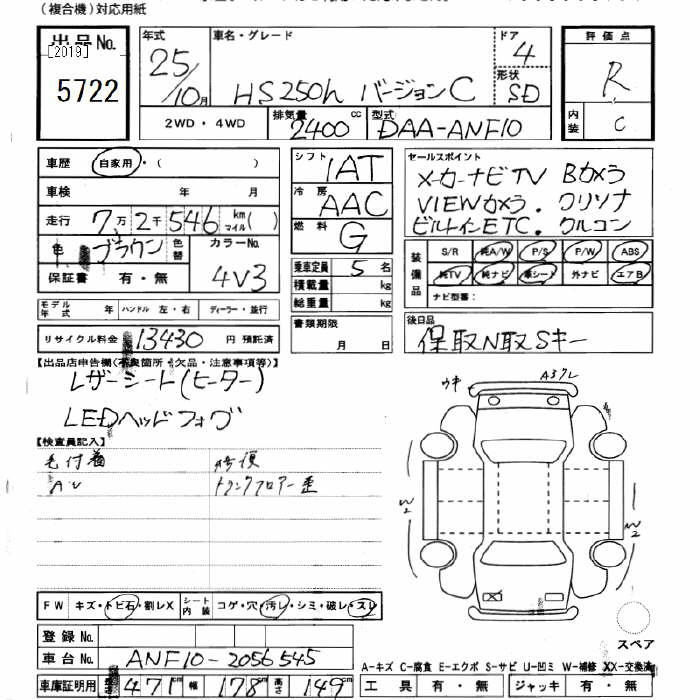 (複合機)対応用紙
出品No. [2019] 5722
年式 25/10月
車名・グレード HS250h バージョンC
ドア 4
形状 SD
評価点 R
内装 C
2WD・4WD
排気量 2400 cc
型式 DAA-ANF10
車歴 自家用・( )
車検 年 月
走行 7万2千546 km マイル( )
色 ブラウン 色替 カラーNo. 4V3
保証書 有・無
モデル年式 年 ハンドル 左・右 ディーラー・並行
リサイクル料金 13430 円 預託済
シフト IAT
冷房 AAC
燃料 G
乗車定員 5名
積載量 kg
総重量 kg
書類期限 月 日
セールスポイント
メーカーナビTV Bカメラ
VIEWカメラ. クリソナ
ビルトインETC. クルコン
装備品 S/R 純A/W P/S P/W ABS
純TV 純ナビ 革シート 外ナビ エアB
ナビ型番:
後日品
保取N取Sキー
【出品店申告欄(不良箇所・欠品・注意事項等)】
レザーシート(ヒーター)
LEDヘッド フォグ
【検査員記入】
毛付着
トランクフロアー歪
ウキ A3 W2 W2
FW キズ・トビ石・割レX シート内装 コゲ・穴・汚レ・シミ・破レ・スレ
登録No.
車台No. ANF10-2056545
車庫証明用 長さ 471cm 幅 178cm 高さ 149cm
スペア
A-キズ C-腐食 E-エクボ S-サビ U-凹ミ W-補修 XX-交換済
工具 有・無 ジャッキ 有・無